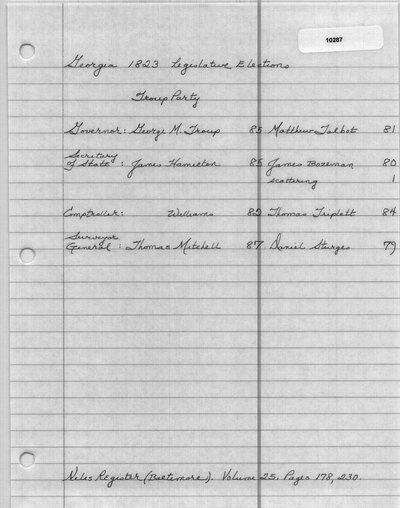 10287
Georgia 1823 Legislative Elections
Troup Party
Governor: George M. Troup 85 Matthew Talbot 81
Secretary
of State: James Hamilton 85 James Bozeman 80
scattering 1
Comptroller: Williams 82 Thomas Triplett 84
Surveyor
General: Thomas Mitchell 87 Daniel Sturges 79
Niles Register (Baltimore). Volume 25. Pages 178, 230.